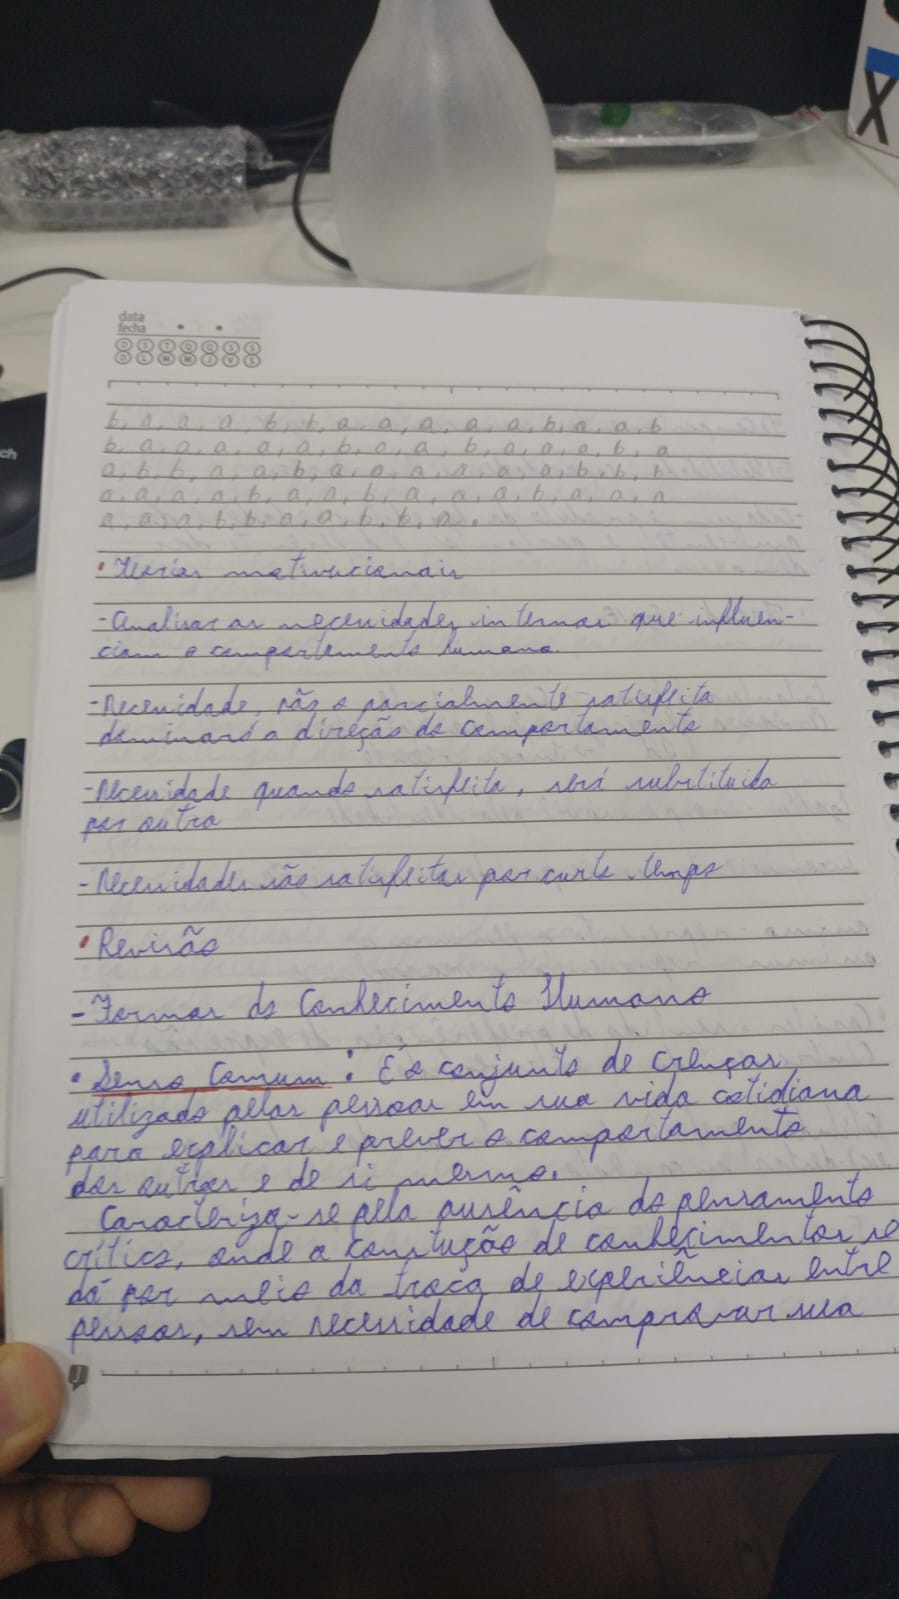 X
ch
data
fecha
D S T Q Q S S
D L M M J V S
b, a, a, a, b, b, a, a, a, a, a, b, a, a, b
b, a, a, a, a, a, b, a, a, b, a, a, a, b, a
a, b, b, a, a, b, a, a, a, a, a, a, b, b, b
a, a, a, a, b, a, a, b, a, a, a, b, a, a, a
a, a, a, b, b, a, a, b, b, a.
• Teorias motivacionais
- Analisar as necessidades internas que influen-
ciam o comportamento humano.
- Necessidade, não o parcialmente satisfeita
dominará a direção do comportamento
- Necessidade quando satisfeita, será substituida
por outra
- Necessidades são satisfeitas por curto tempo
• Revisão
- Formas do Conhecimento Humano
• Senso Comum: É o conjunto de crenças
utilizado pelas pessoas em sua vida cotidiana
para explicar e prever o comportamento
dos outros e de si mesmo.
Caracteriza-se pela ausência do pensamento
crítico, onde a constução de conhecimentos se
dá por meio da troca de experiências entre
pessoas, sem necessidade de comprovar sua